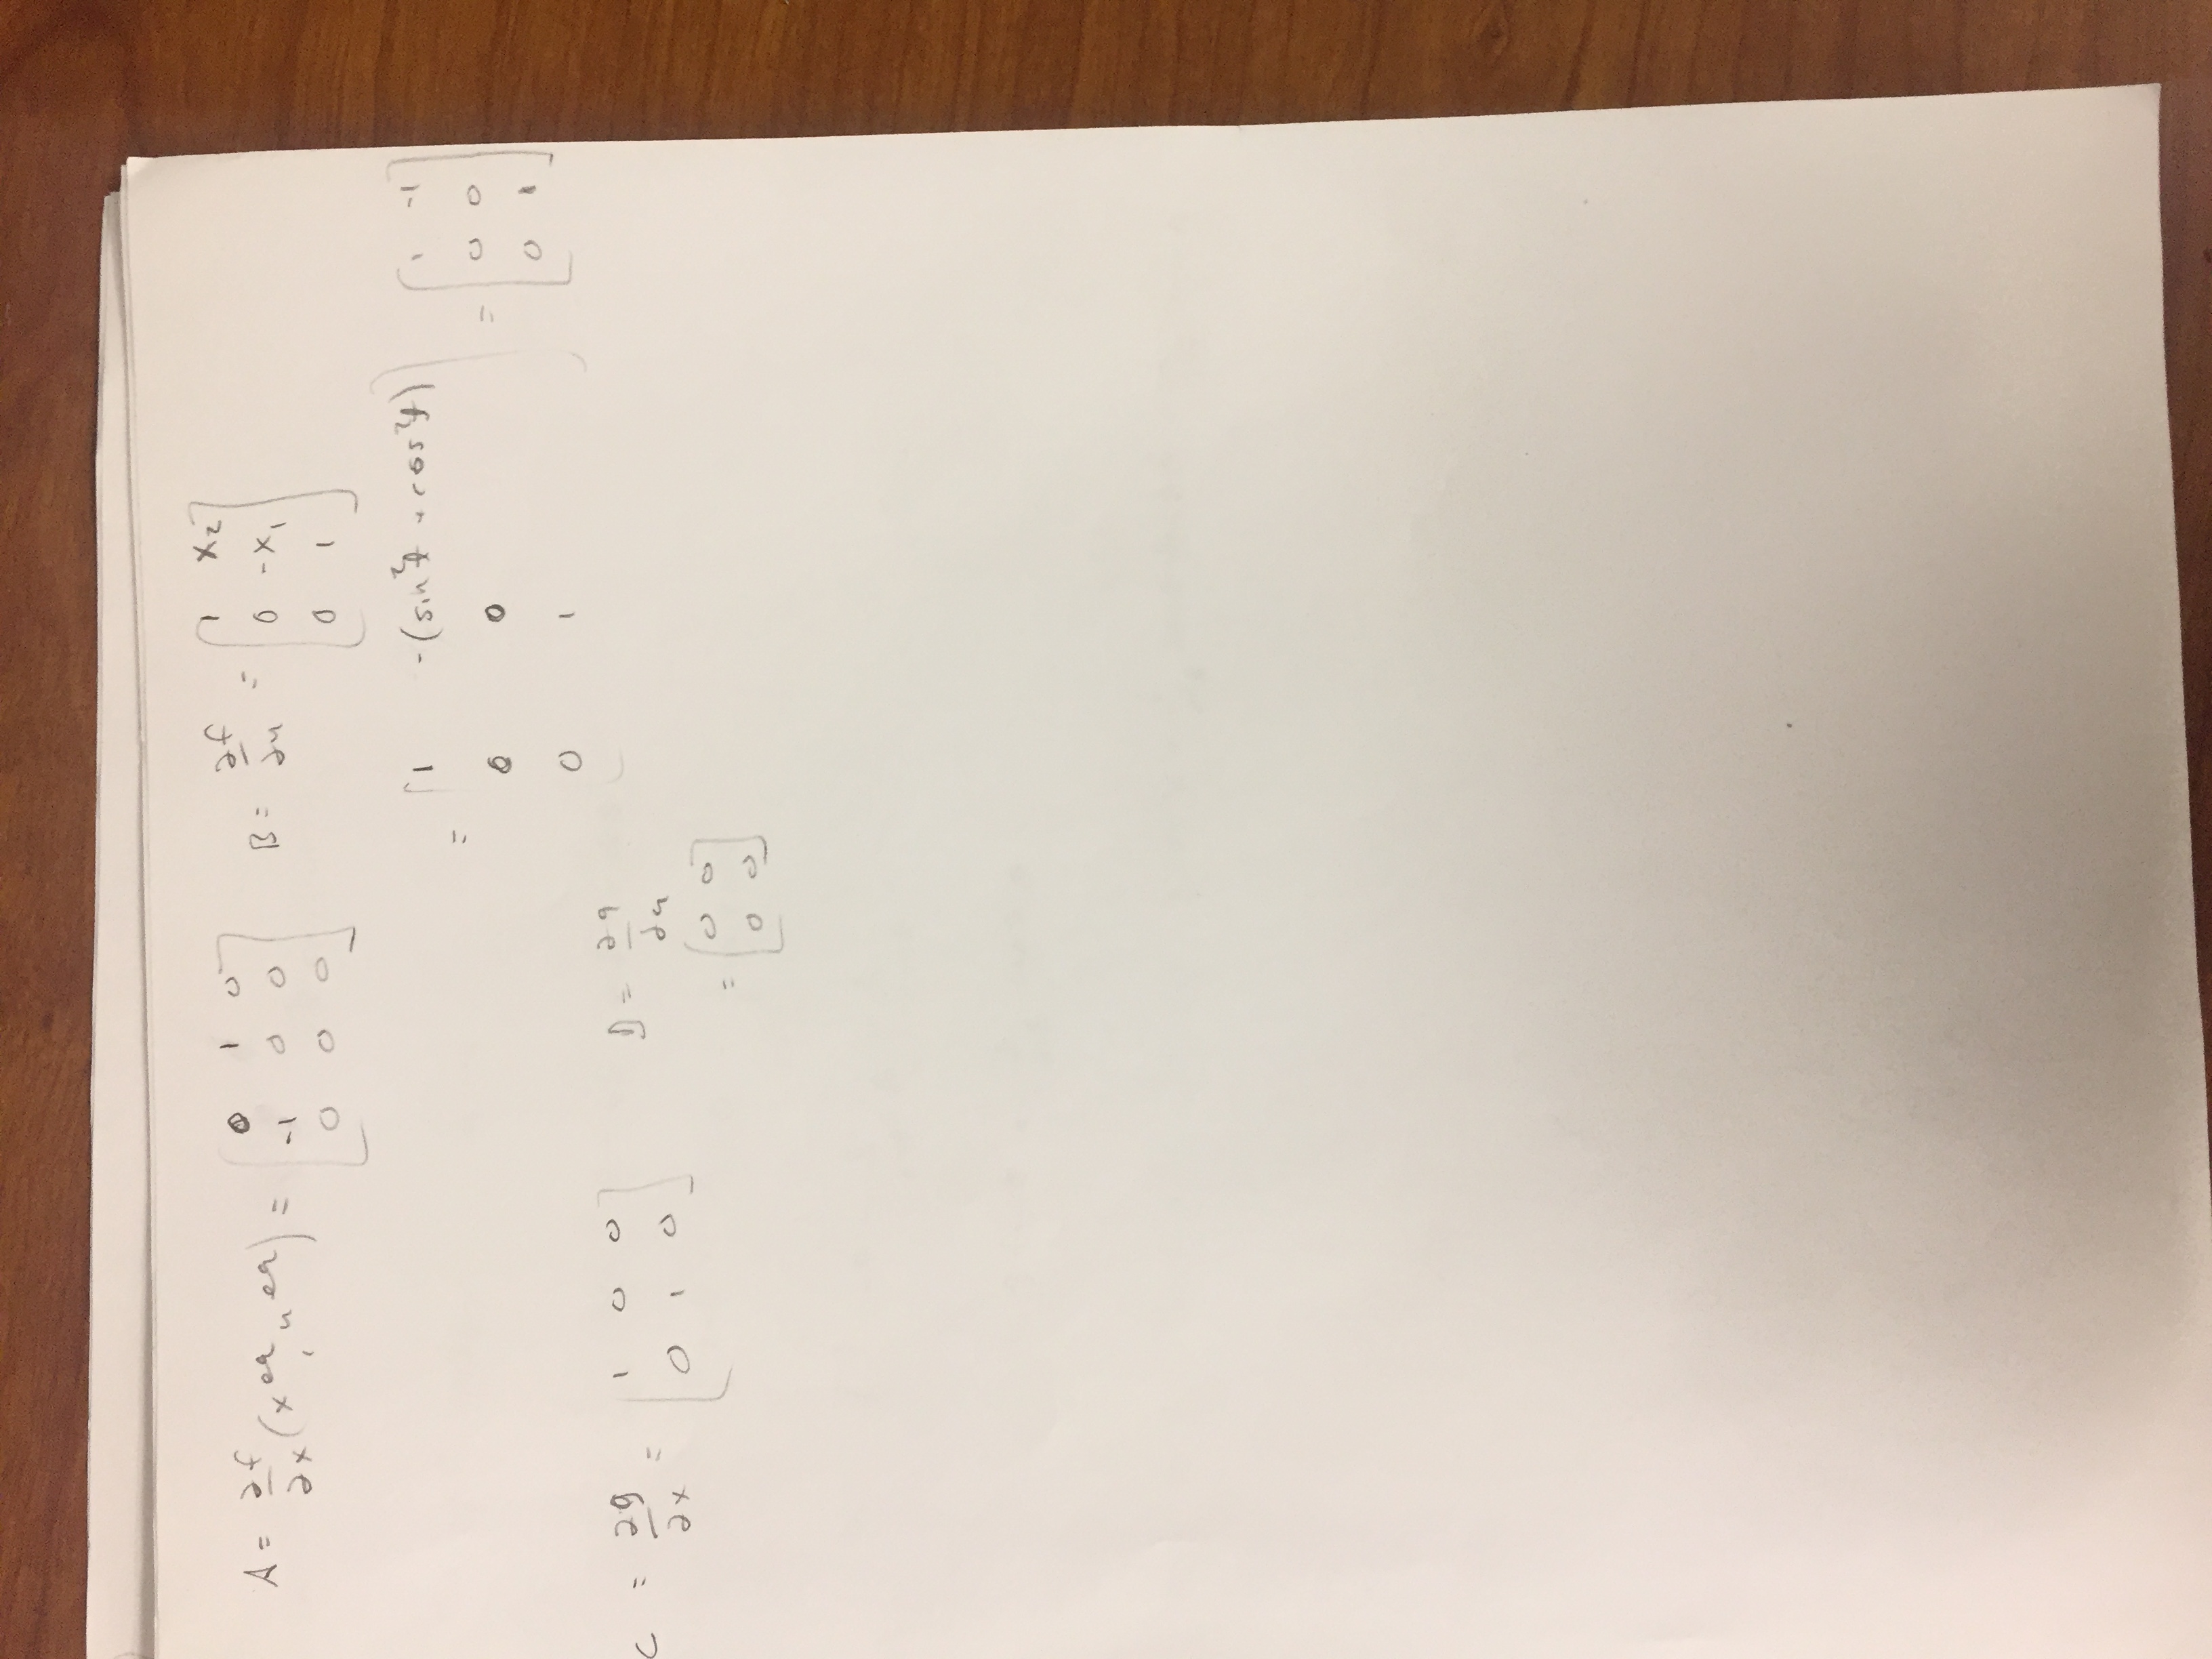 A = ∂f/∂x (x^eq, u^eq) = [0 1 0; -1 0 0; 0 0 0]
B = ∂f/∂u = [1 x₂; 0 -x₁; 0 1]
= [1 -(sin²t + cos²t); 0 0; 0 1] = [1 -1; 0 0; 0 1]
C = ∂g/∂x = [1 0 0; 0 1 0]
D = ∂g/∂u
= [0 0; 0 0]